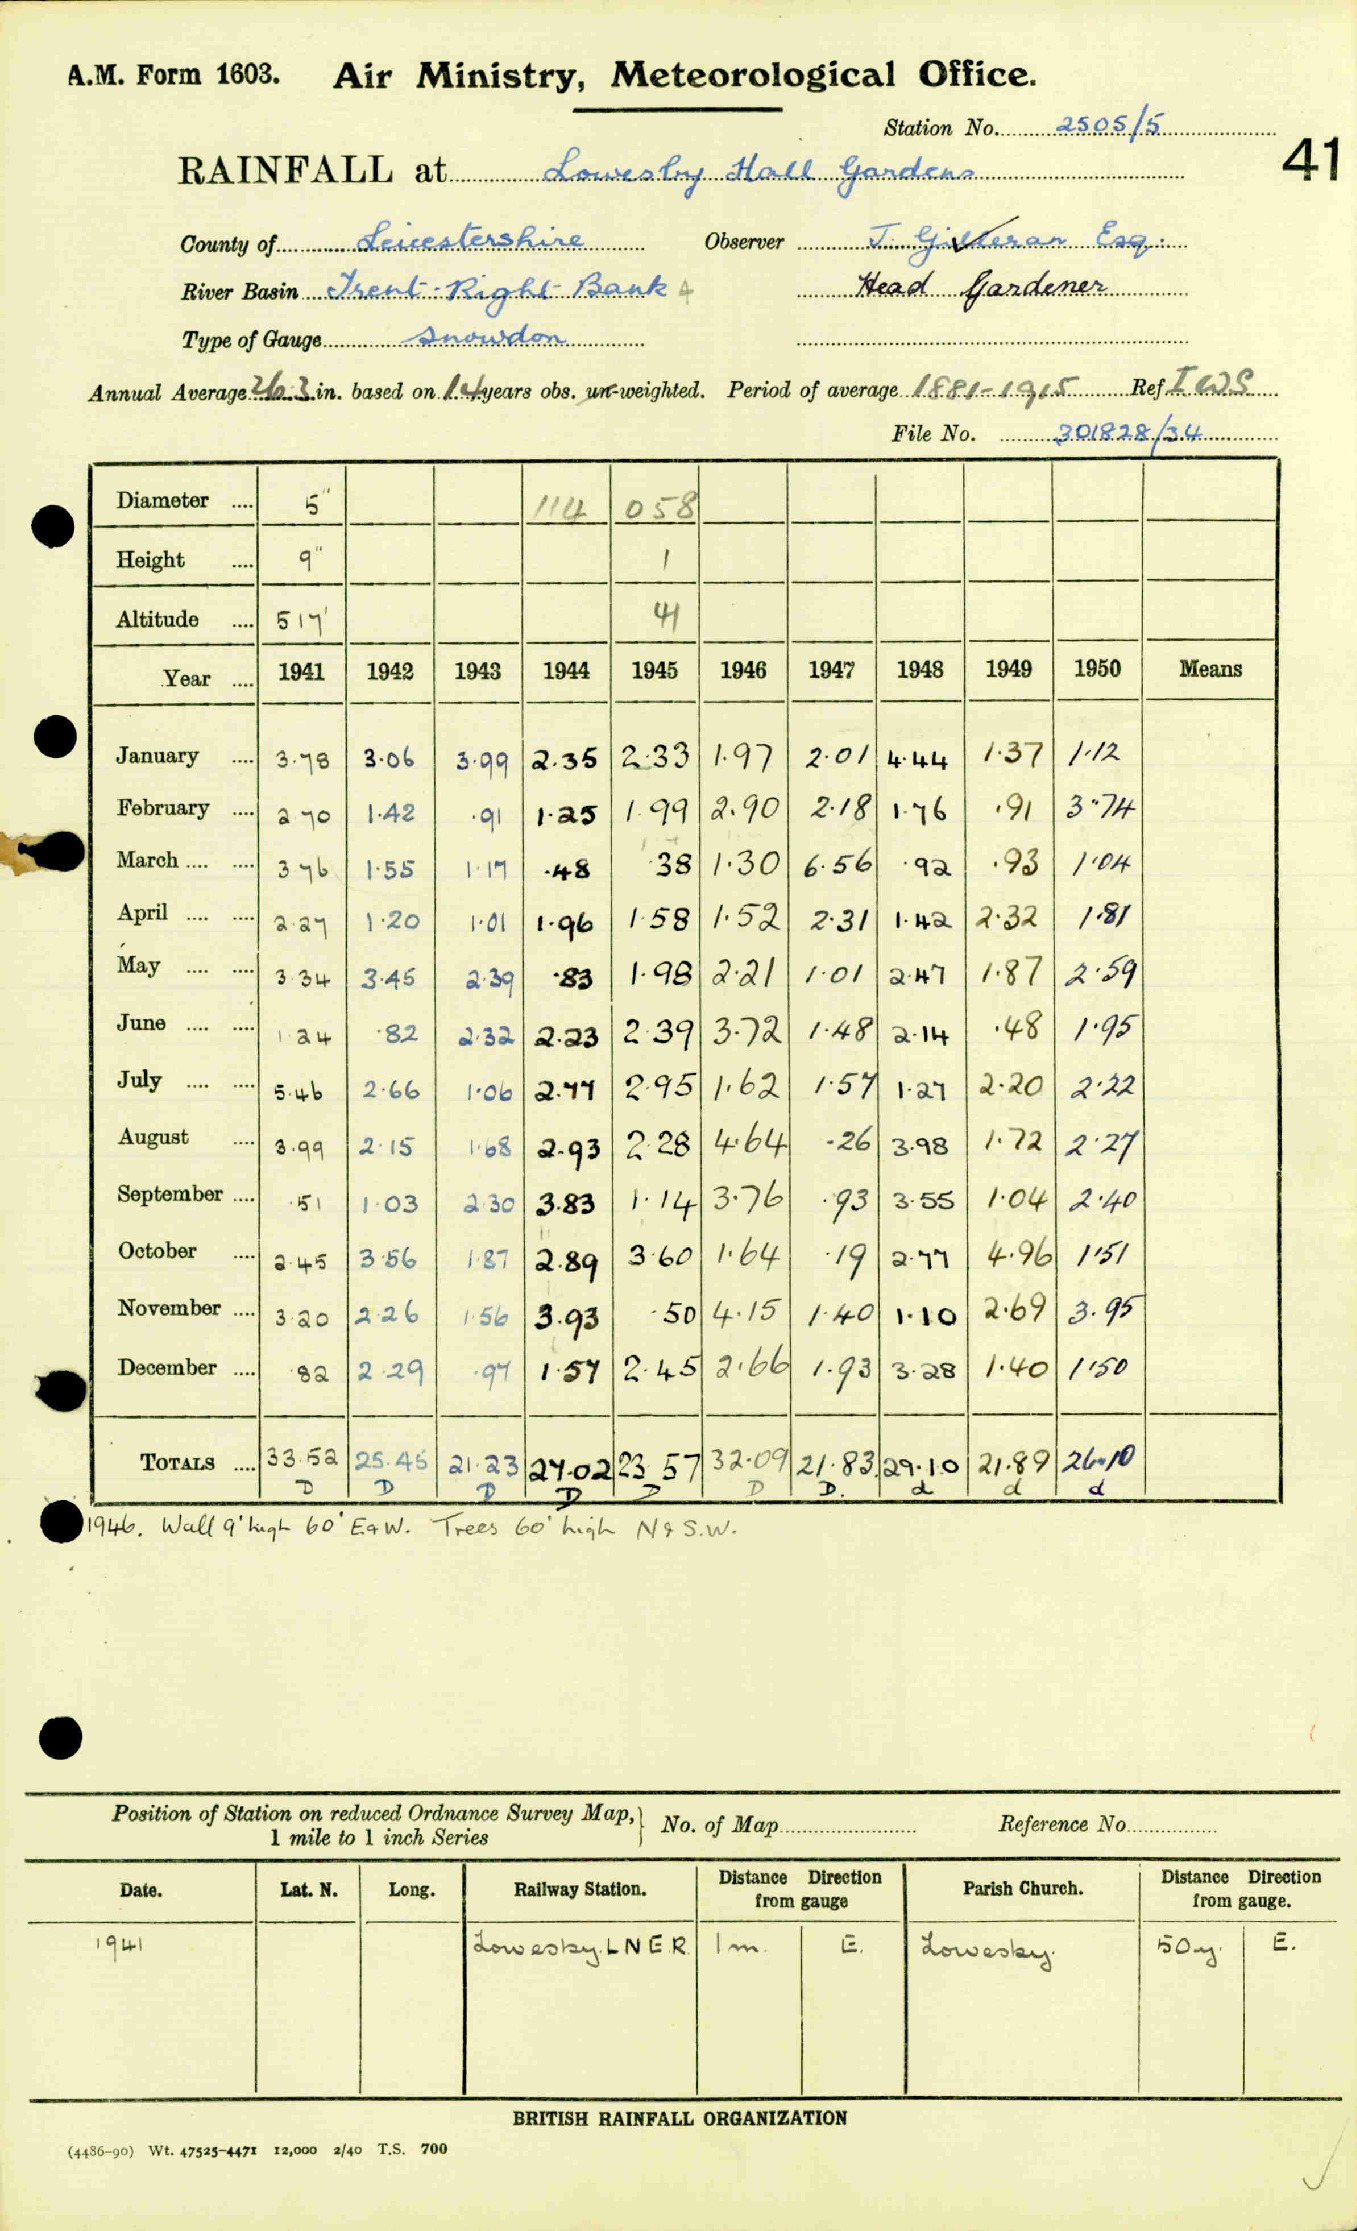 A.M. Form 1603. Air Ministry, Meteorological Office.
Station No. 2505/5
41
RAINFALL at Lowesby Hall Gardens
County of Leicestershire Observer J. Esq.
River Basin Trent Right Bank 4 Head Gardener
Type of Gauge Snowdon
Annual Average 26.3 in. based on 14 years obs. un-weighted. Period of average 1881-1915 Ref IWS
File No. 301828/34
Diameter .... 5" 114 058
Height .... 9" 1
Altitude .... 517' 41
Year .... 1941 1942 1943 1944 1945 1946 1947 1948 1949 1950 Means
January .... 3.78 3.06 3.99 2.35 2.33 1.97 2.01 4.44 1.37 1.12
February .... 2 70 1.42 .91 1.25 1.99 2.90 2.18 1.76 .91 3.74
March .... .... 3 76 1.55 1.17 .48 .38 1.30 6.56 .92 .93 1.04
April .... .... 2.27 1.20 1.01 1.96 1.58 1.52 2.31 1.42 2.32 1.81
May .... .... 3 34 3.45 2.39 .83 1.98 2.21 1.01 2.47 1.87 2.59
June .... .... 1 24 .82 2.32 2.23 2.39 3.72 1.48 2.14 .48 1.95
July .... .... 5.46 2.66 1.06 2.77 2.95 1.62 1.57 1.27 2.20 2.22
August .... 3.99 2.15 1.68 2.93 2.28 4.64 .26 3.98 1.72 2.27
September .... .51 1.03 2.30 3.83 1.14 3.76 .93 3.55 1.04 2.40
October .... 2.45 3.56 1.87 2.89 3.60 1.64 .19 2.77 4.96 1.51
November .... 3.20 2.26 1.56 3.93 .50 4.15 1.40 1.10 2.69 3.95
December .... .82 2.29 .97 1.57 2.45 2.66 1.93 3.28 1.40 1.50
TOTALS .... 33.52 25.45 21.23 27.02 23 57 32.09 21.83 29.10 21.89 26.10
D D D D D D D. d d d
1946. Wall 9' high 60' E & W. Trees 60' high N & S.W.
Position of Station on reduced Ordnance Survey Map, No. of Map Reference No.
1 mile to 1 inch Series
Date. Lat. N. Long. Railway Station. Distance Direction from gauge Parish Church. Distance Direction from gauge.
1941 Lowesby. L N E R. 1 m. E. Lowesby. 50 y. E.
BRITISH RAINFALL ORGANIZATION
(4486-90) Wt. 47525-4471 12,000 2/40 T.S. 700